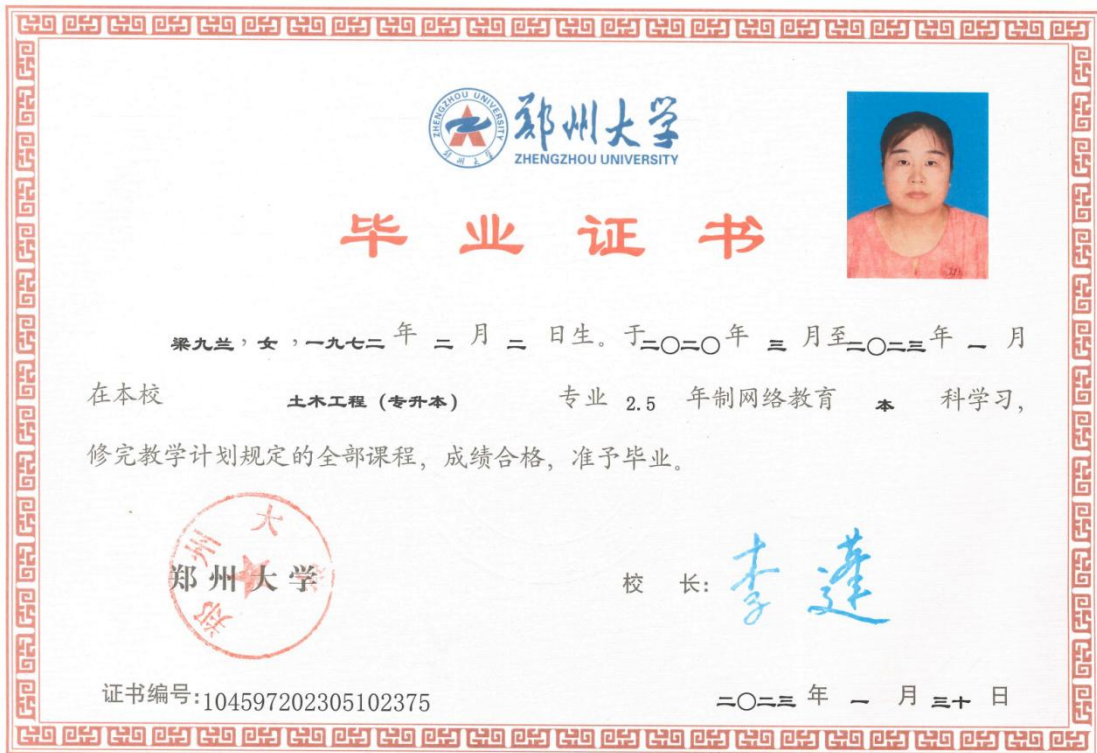 ZHENGZHOU UNIVERSITY
郑州大学
郑州大学
ZHENGZHOU UNIVERSITY
毕业证书
梁九兰，女，一九七二年 二 月 二 日生。于二〇二〇年 三 月至二〇二三年 一 月
在本校 土木工程（专升本） 专业 2.5 年制网络教育 本 科学习，
修完教学计划规定的全部课程，成绩合格，准予毕业。
郑州大学
郑州大学
校 长：李蓬
证书编号:104597202305102375
二〇二三 年 一 月 三十 日